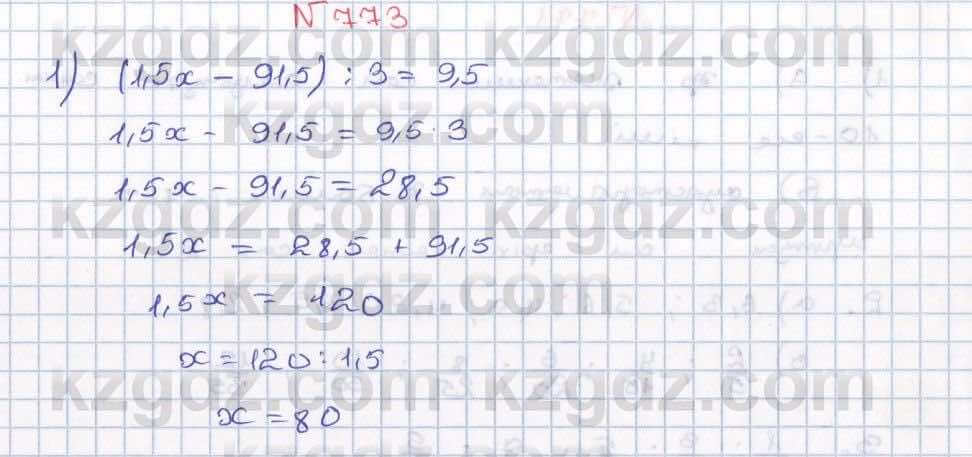 № 773
1) (1,5x - 91,5) : 3 = 9,5
1,5x - 91,5 = 9,5 · 3
1,5x - 91,5 = 28,5
1,5x = 28,5 + 91,5
1,5x = 120
x = 120 : 1,5
x = 80
kzgdz.com kzgdz.com
kzgdz.com
kzgdz.com kzgdz.com
kzgdz.com
kzgdz.com kzgdz.com